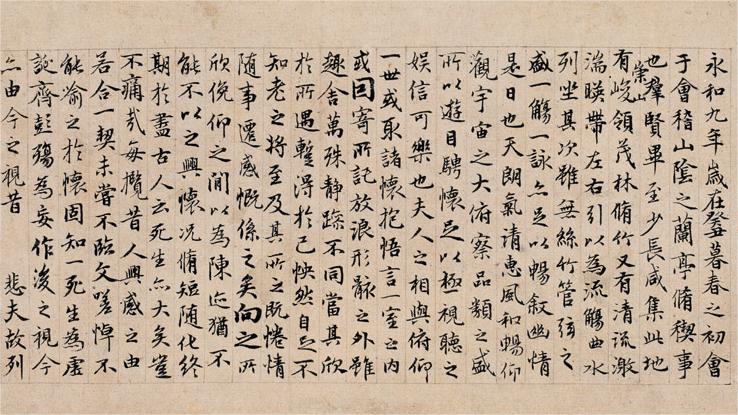 永和九年歲在癸暮春之初會
于會稽山陰之蘭亭脩稧事
也羣賢畢至少長咸集此地
有崇山峻領茂林脩竹又有清流激
湍暎帶左右引以為流觴曲水
列坐其次雖無絲竹管弦之
盛一觴一詠亦足以暢敘幽情
是日也天朗氣清惠風和暢仰
觀宇宙之大俯察品類之盛
所以遊目騁懷足以極視聽之
娛信可樂也夫人之相與俯仰
一世或取諸懷抱悟言一室之內
或因寄所託放浪形骸之外雖
趣舍萬殊静躁不同當其欣
於所遇蹔得於己怏然自足不
知老之將至及其所之既惓情
随事遷感慨係之矣向之所
欣俛仰之閒以為陳迹猶不
能不以之興懷況脩短随化終
期於盡古人云死生亦大矣豈
不痛哉每攬昔人興感之由
若合一契未嘗不臨文嗟悼不
能喻之於懷固知一死生為虛
誕齊彭殤為妄作後之視今
亦由今之視昔 悲夫故列